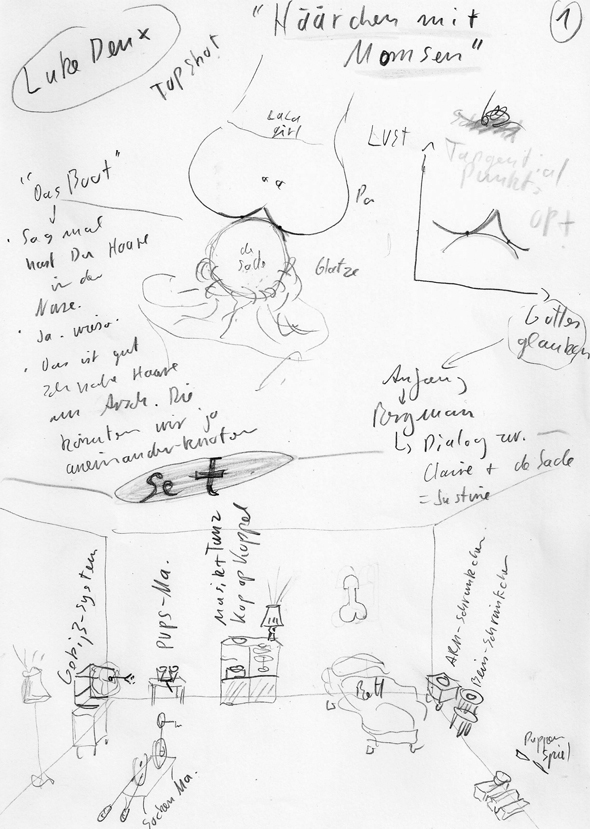 "Häärchen mit
Momsen"
1
Luke Deux
Topshot
LaLa
girl
Po
de
Sade
Glatze
LUST
Tangential
punkte
OPt
Gottes
glauben
"Das Boot"
Sag mal
hast Du Haare
in der
Nase.
Ja. wieso.
Das ist gut
Ich habe Haare
am Arsch. Die
könnten wir ja
aneinander knoten
Anfang
Bergman
Dialog zw.
Claire + de Sade
= Justine
Set
Gobi,β-System
PUPS-Ma.
Musik+Tanz
Kop op Koppel
Bett
ARM-Schränkchen
Bein-Schränkchen
Puppen
Spiel
Socken Ma.